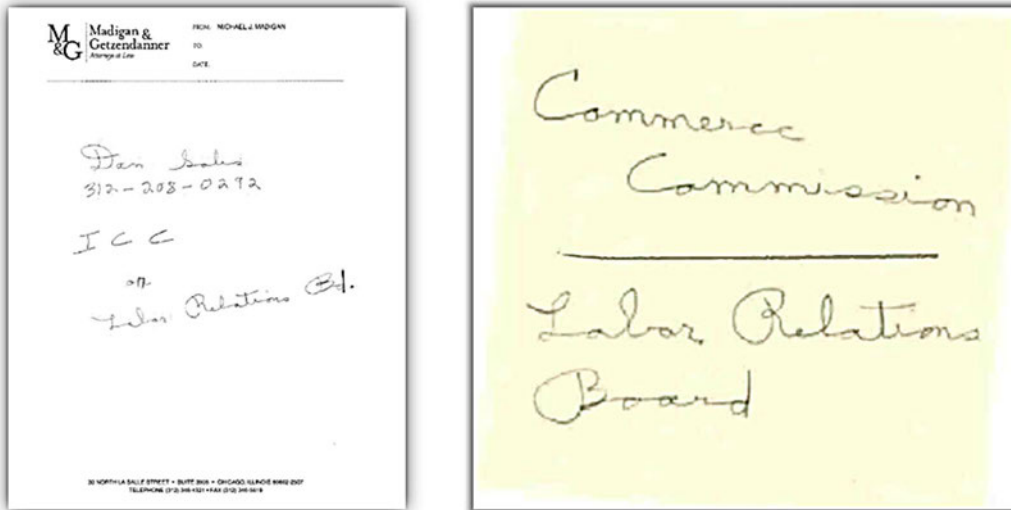 M&G
Madigan &
Getzendanner
Attorneys at Law
FROM: MICHAEL J. MADIGAN
TO:
DATE:
Dan
312-208-0292
I C C
or
Labor Relations Bd.
30 NORTH LA SALLE STREET • SUITE • CHICAGO, ILLINOIS 60602-2507
TELEPHONE (312) • FAX (312)
Commerce
Commission
Labor Relations
Board